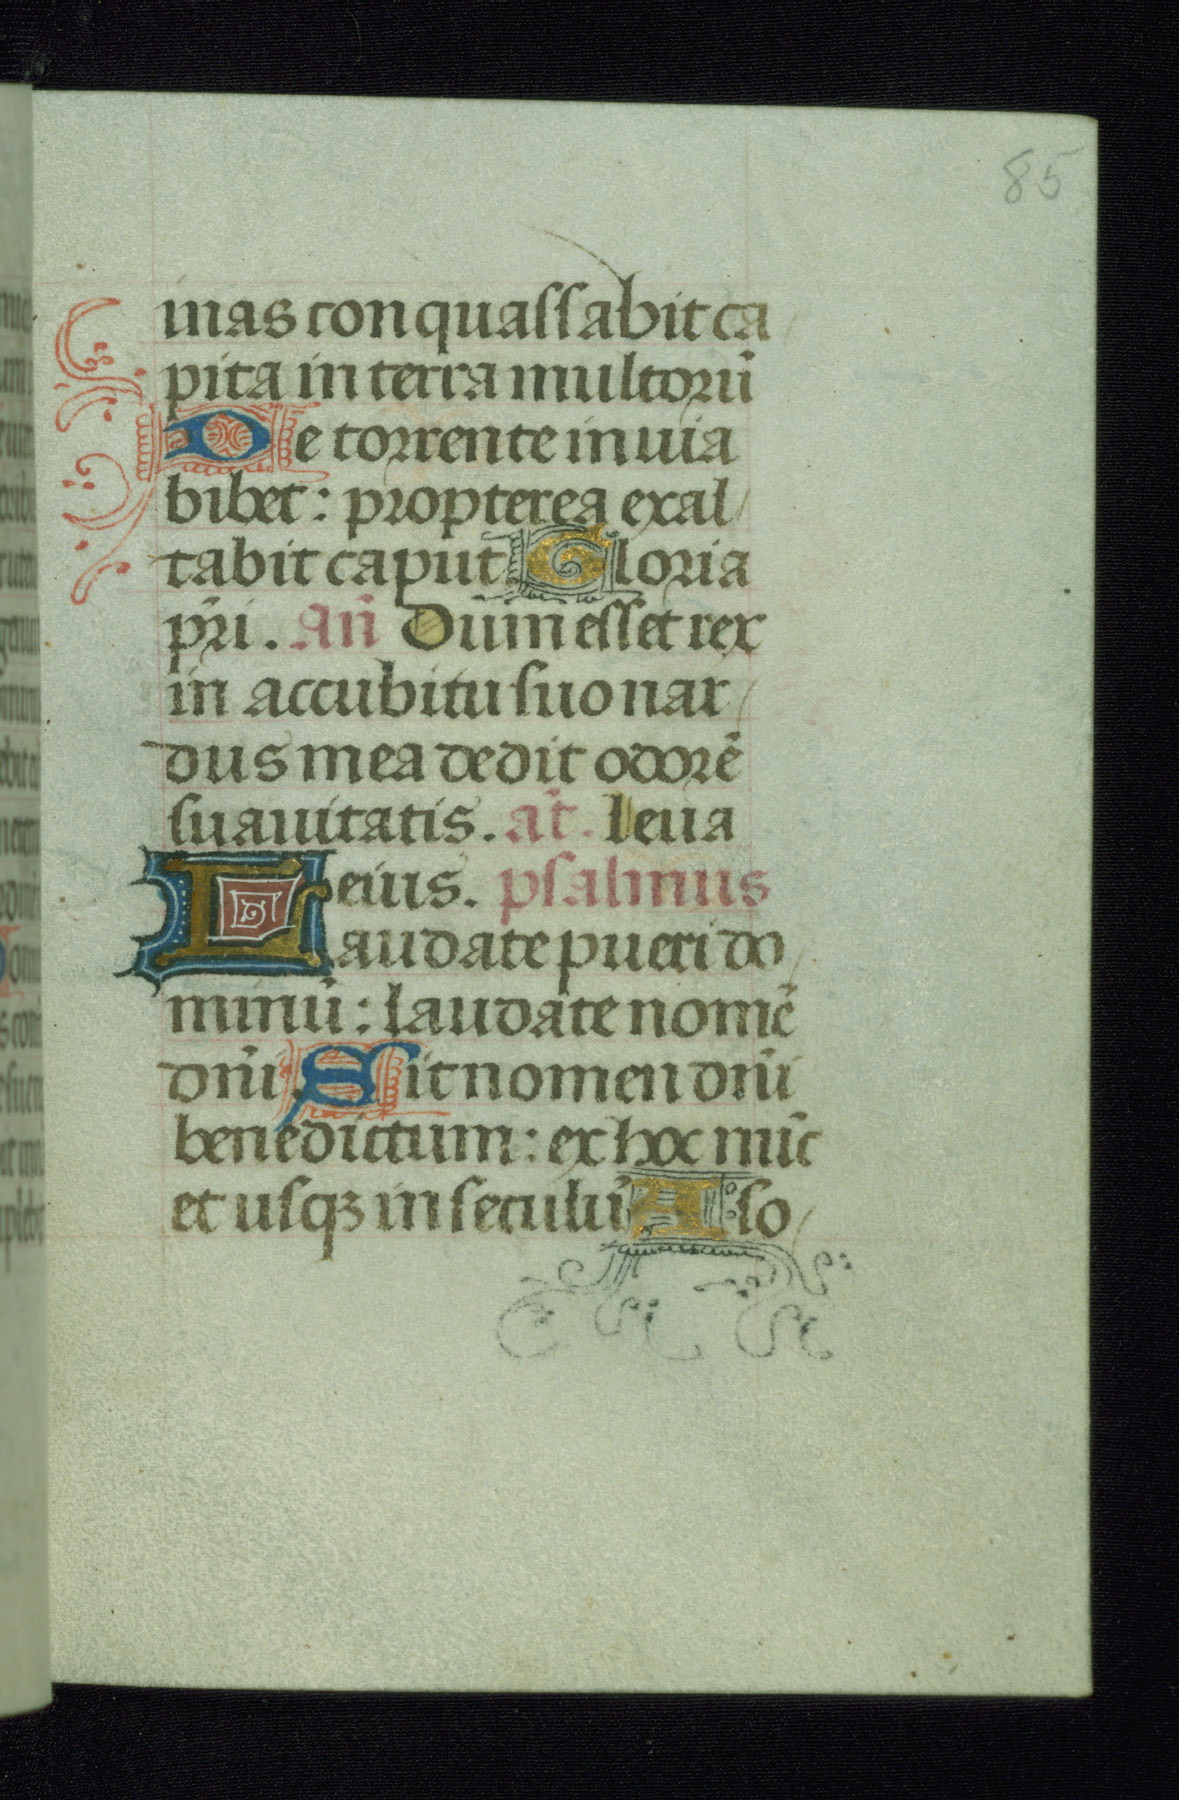 85
inas conquassabit ca
pita in terra multorū
De torrente in uia
bibet: propterea exal
tabit caput Gloria
pr̄i. An̄ Dum esset rex
in accubitu suo nar
dus mea dedit odorē
suauitatis. at̄. Leua
eius. psalmus
Laudate pueri do
minū: laudate nomē
dn̄i. Sit nomen dn̄i
benedictum: ex hoc nūc
et usqꝫ in seculū A so